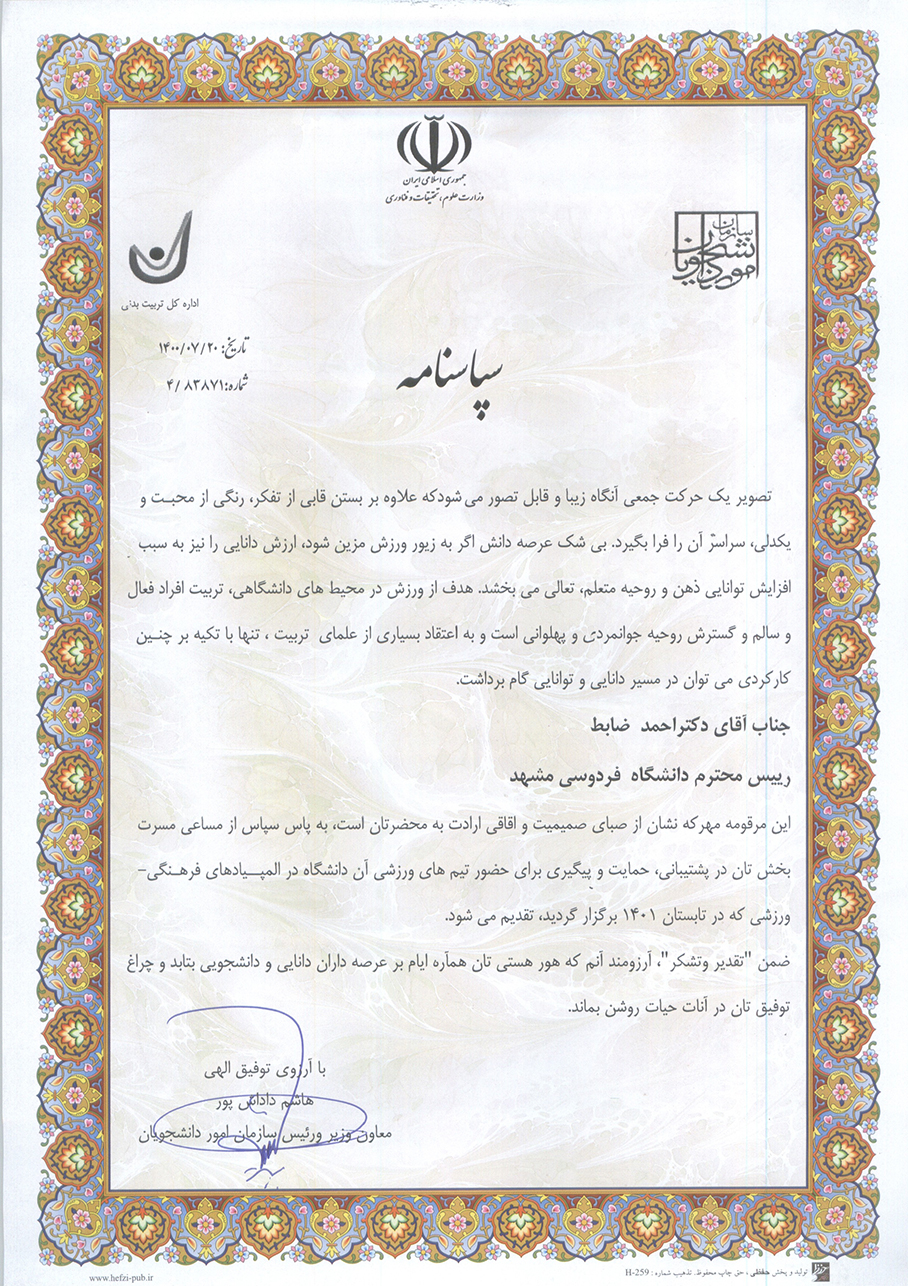 جمهوری اسلامی ایران
وزارت علوم، تحقیقات و فناوری
سازمان امور دانشجویان
اداره کل تربیت بدنی
تاریخ: ۱۴۰۰/۰۷/۲۰
شماره: ۴/۸۳۸۷۱
سپاسنامه
تصویر یک حرکت جمعی آنگاه زیبا و قابل تصور می شودکه علاوه بر بستن قابی از تفکر، رنگی از محبت و
یکدلی، سراسرٌ آن را فرا بگیرد. بی شک عرصه دانش اگر به زیور ورزش مزین شود، ارزش دانایی را نیز به سبب
افزایش توانایی ذهن و روحیه متعلم، تعالی می بخشد. هدف از ورزش در محیط های دانشگاهی، تربیت افراد فعال
و سالم و گسترش روحیه جوانمردی و پهلوانی است و به اعتقاد بسیاری از علمای تربیت ، تنها با تکیه بر چنین
کارکردی می توان در مسیر دانایی و توانایی گام برداشت.
جناب آقای دکتراحمد ضابط
رییس محترم دانشگاه فردوسی مشهد
این مرقومه مهرکه نشان از صبای صمیمیت و اقاقی ارادت به محضرتان است، به پاس سپاس از مساعی مسرت
بخش تان در پشتیبانی، حمایت و پیگیری برای حضور تیم های ورزشی آن دانشگاه در المپیادهای فرهنگی-
ورزشی که در تابستان ۱۴۰۱ برگزار گردید، تقدیم می شود.
ضمن "تقدیر وتشکر"، آرزومند آنم که هور هستی تان هماره ایام بر عرصه داران دانایی و دانشجویی بتابد و چراغ
توفیق تان در آنات حیات روشن بماند.
با آرزوی توفیق الهی
هاشم داداش پور
معاون وزیر ورئیس سازمان امور دانشجویان
تولید و پخش حفظی ، حق چاپ محفوظ. تذهیب شماره : H-259
www.hefzi-pub.ir